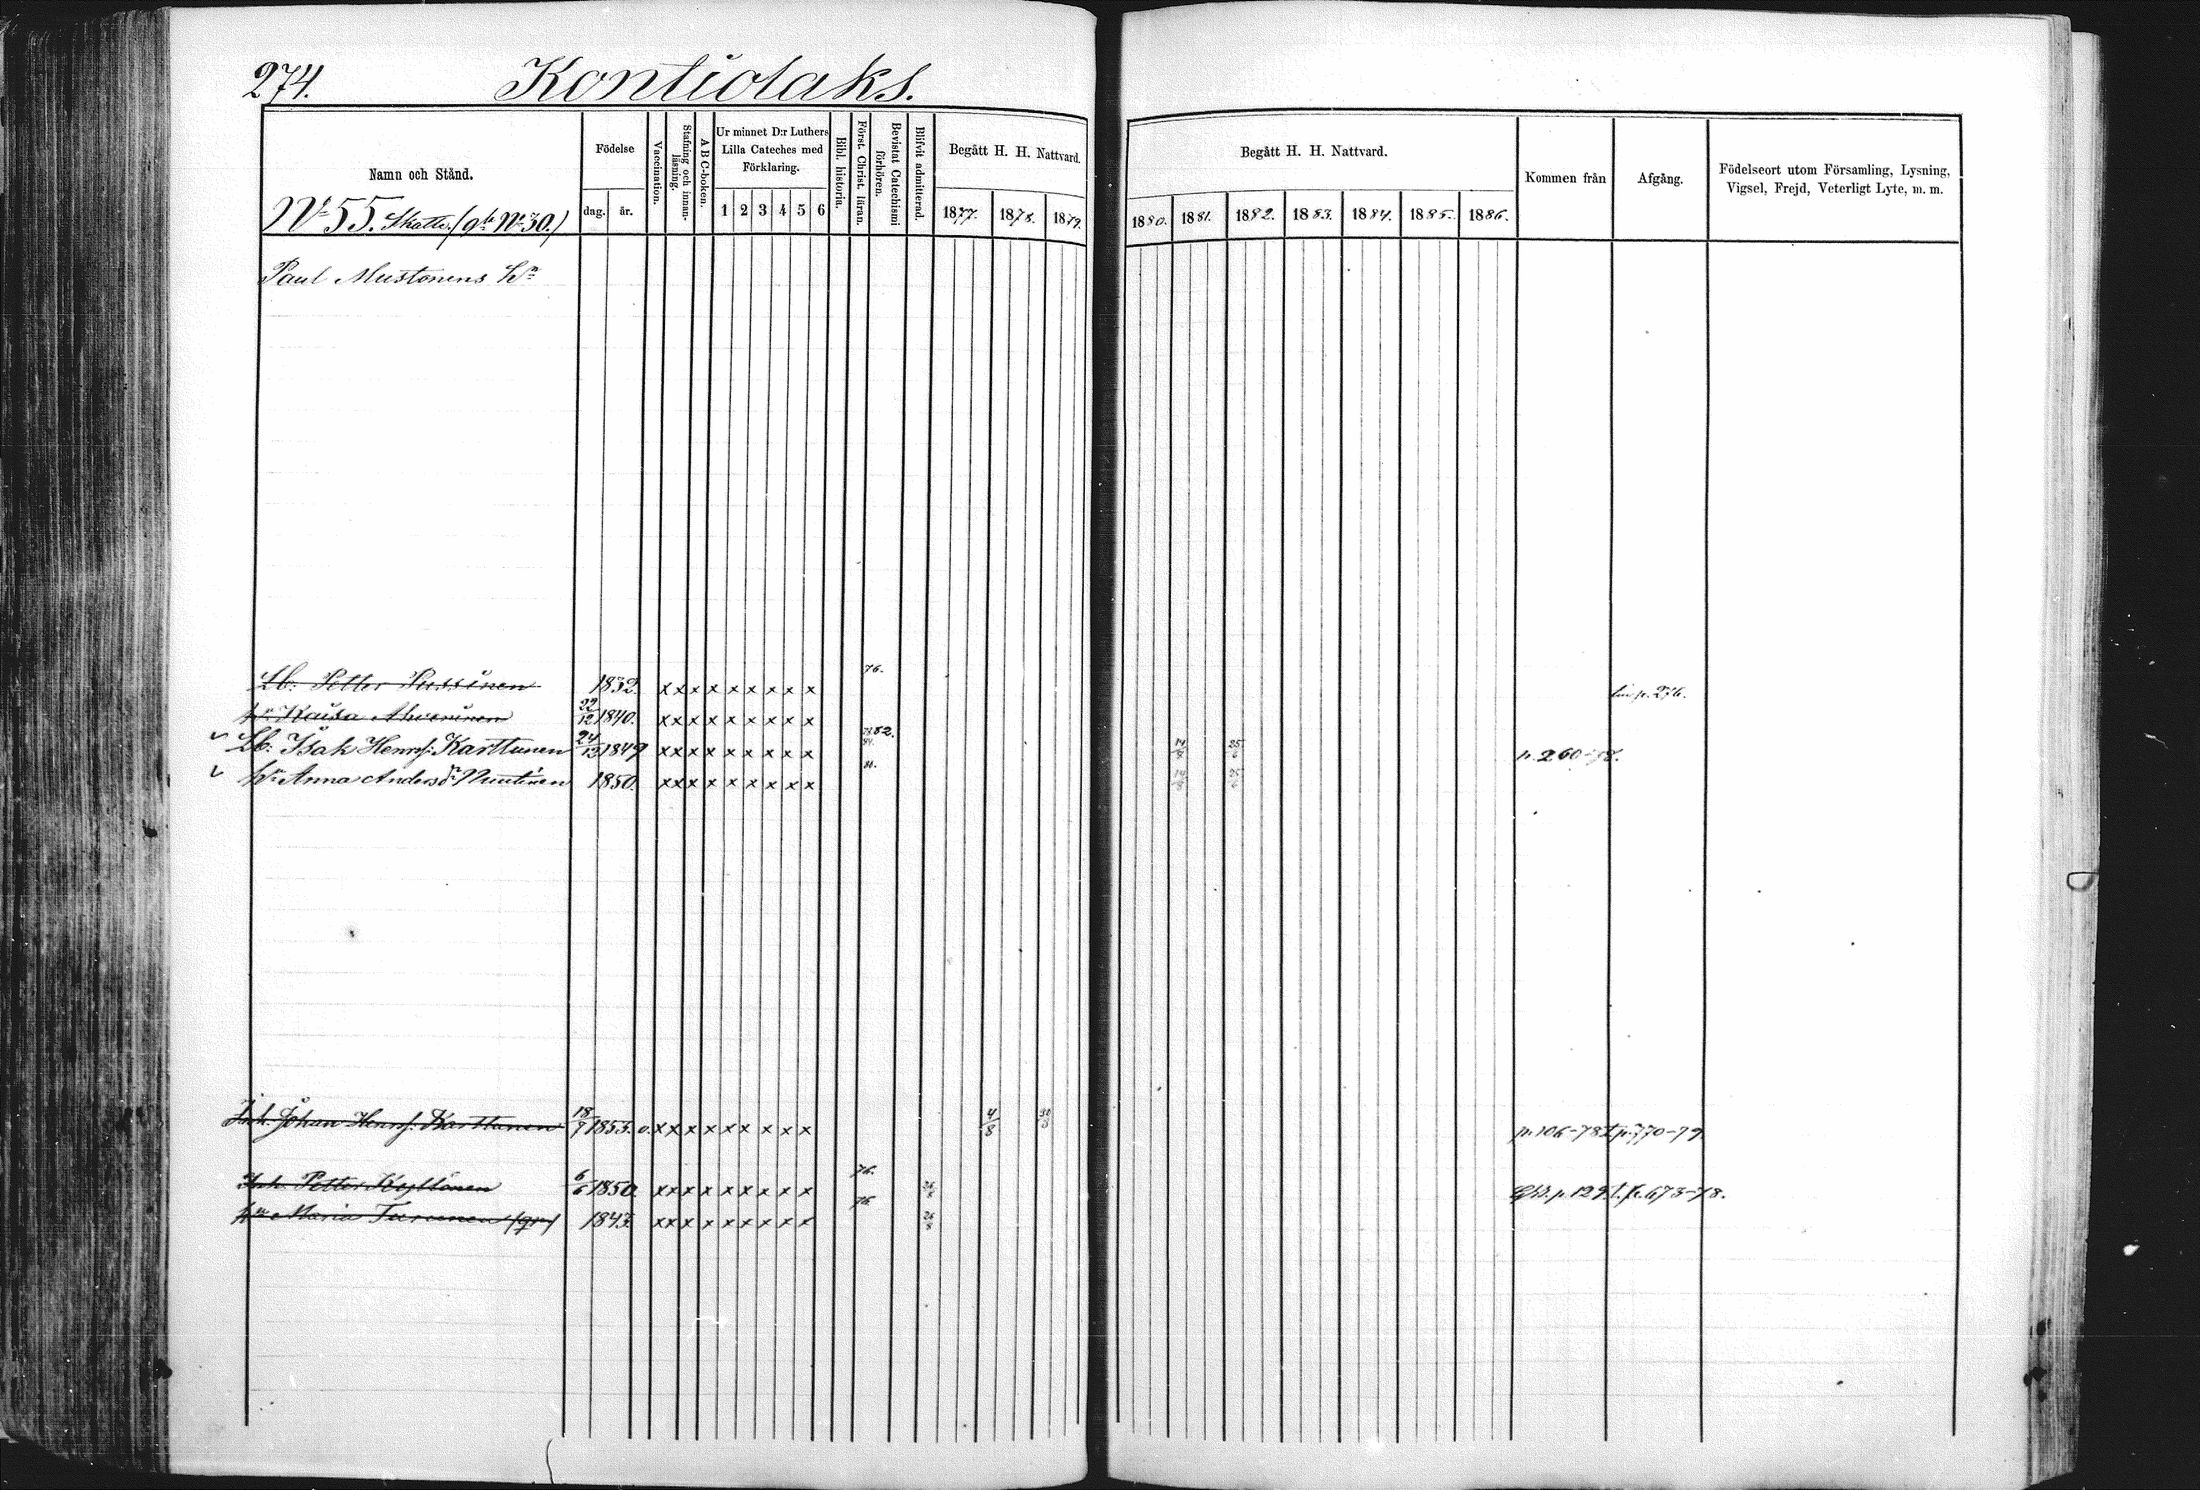 274. Kontiolaks.
Namn och Stånd.
Födelse
dag. år.
Vaccination.
Stafning och innanläsning.
A B C-boken.
Ur minnet D:r Luthers Lilla Cateches med Förklaring.
1 2 3 4 5 6
Bibl. historia.
Först. Christ. läran.
Bevistat Catechismi förhören.
Blifvit admitterad.
Begått H. H. Nattvard.
1877. 1878. 1879.
Begått H. H. Nattvard.
1880. 1881. 1882. 1883. 1884. 1885. 1886.
Kommen från
Afgång.
Födelseort utom Församling, Lysning, Vigsel, Frejd, Veterligt Lyte, m. m.
No 55. Skatte. (gl. No 30.)
Paul Mustonens
Lb. Petter Pussinen 1832. x x x x x x x x x 76. p. 276.
Kaisa Ahvoninen 22/12 1840. x x x x x x x x x
Lb. Isak Henrsf. Karttunen 24/12 1849 x x x x x x x x x 82. 14/8 25/6 p. 260-78.
hu Anna Andersdr Nuutinen 1850. x x x x x x x x x 14/8 25/6
Inh. Johan Henrsf. Karttunen 18/7 1853. v. x x x x x x x x x 4/8 p. 106-78 t. p. 770-79
Inh. Petter Kyllönen 6/6 1850. x x x x x x x x x 76. p. 129. t. p. 673-78.
hu Maria Turunen (gr) 1843 x x x x x x x x x 76